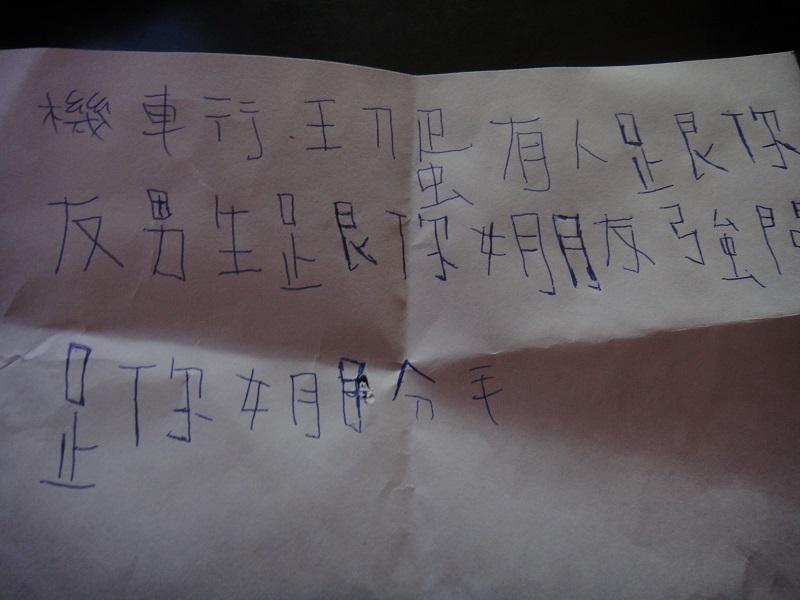 機車行.王八蛋有人跟你
友男生跟你女朋友強
足你女朋分手